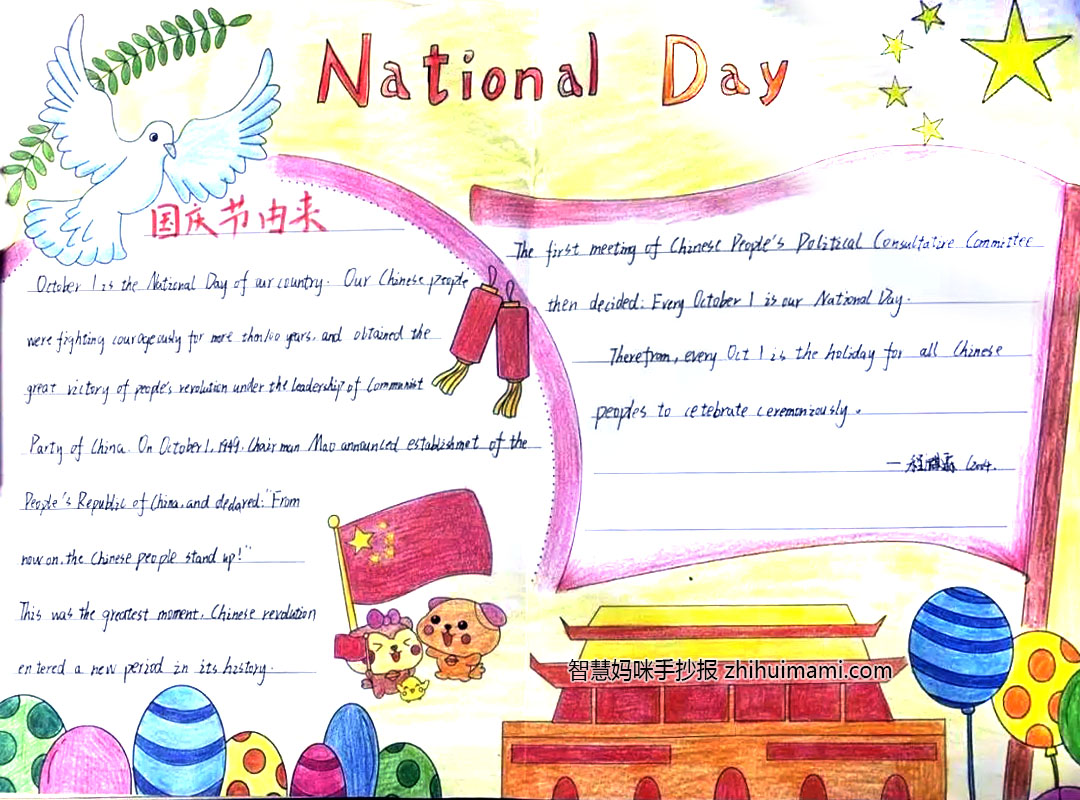 National Day
国庆节由来
October 1 is the National Day of our country. Our Chinese people
were fighting courageously for more than 100 years, and obtained the
great victory of people's revolution under the leadership of Communist
Party of China. On October 1, 1949. Chairman Mao announced establishmet of the
People's Republic of China, and declared: "From
now on, the Chinese people stand up!"
This was the greatest moment. Chinese revolution
entered a new period in its history.
The first meeting of Chinese People's Political Consultative Committee
then decided: Every October 1 is our National Day.
Therefrom, every Oct 1 is the holiday for all Chinese
peoples to cetebrate ceremoniously.
智慧妈咪手抄报 zhihuimami.com